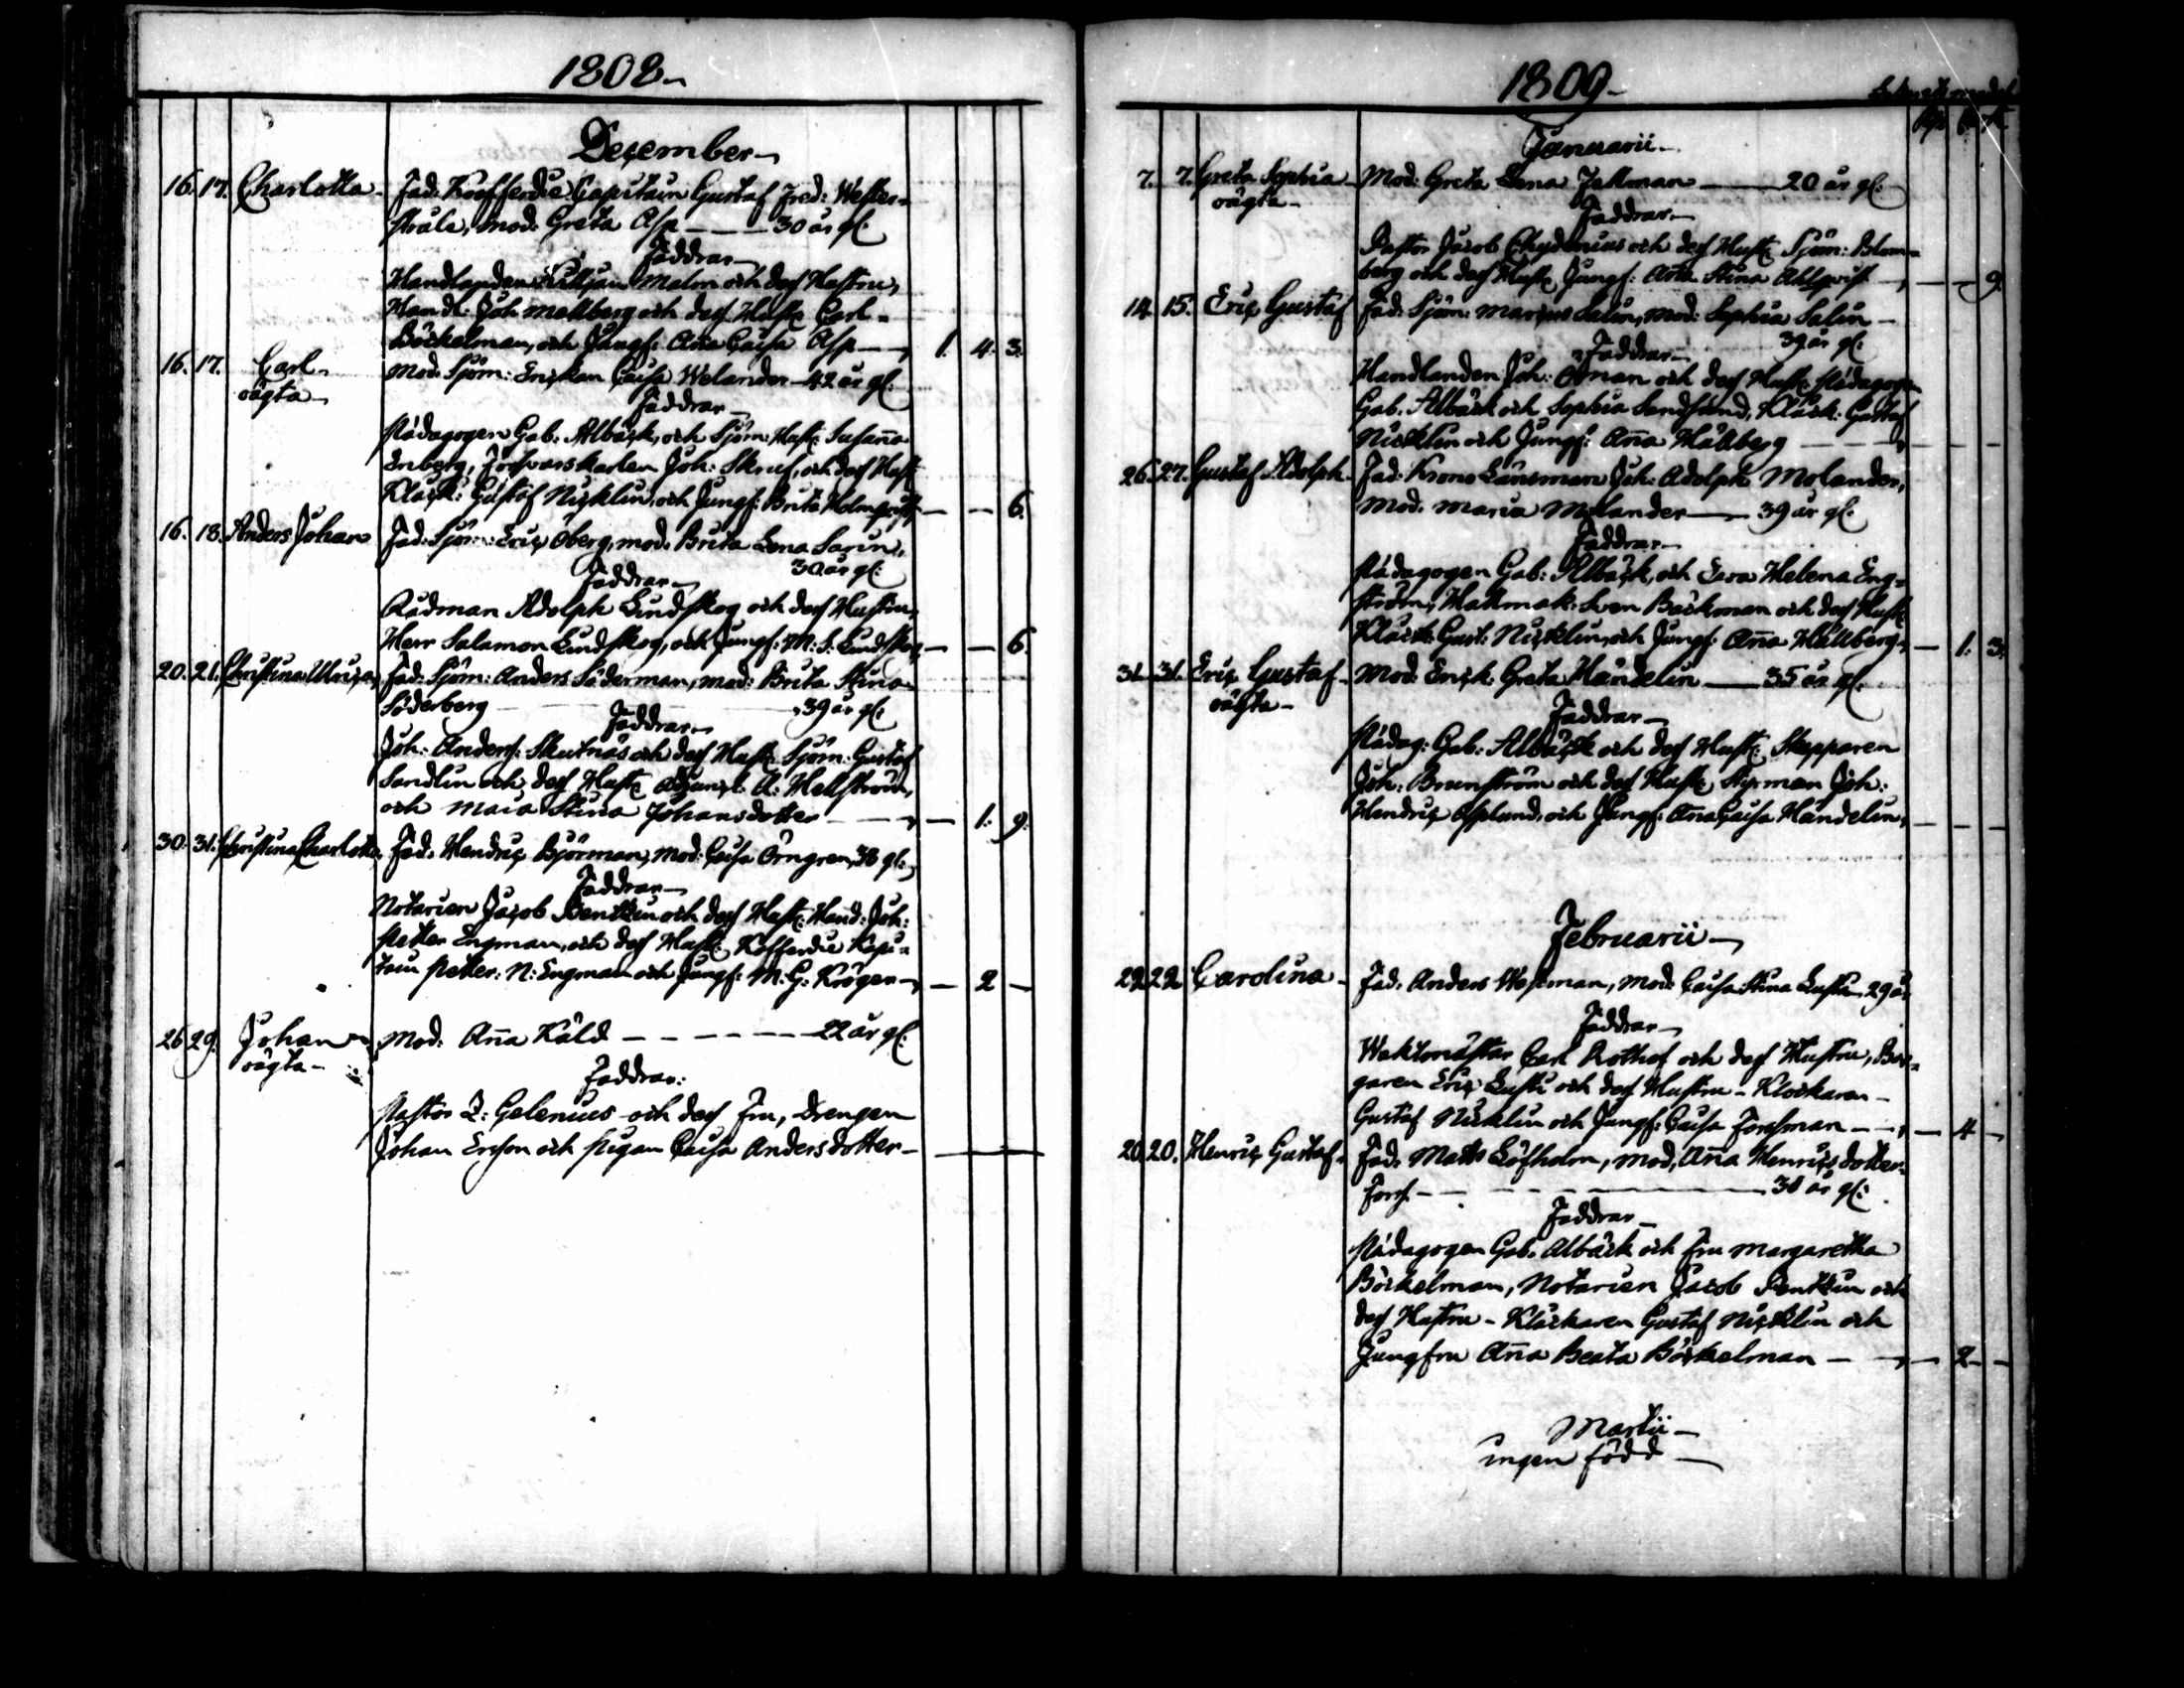 1808
December
16. 17. Charlotta Fad. Kofferdie Capitain Gustaf Fred: Wester-
stråle, mod. Greta Asp 30 år gl.
Faddrar
Handlanden Malm och dess Hustru,
Handl: Joh Mallberg och dess Hustr. Carl
Böckelman, och Jungf: Aña Caisa Asp 1. 4. 3.
16. 17. Carl Mod. Sjöm: Enckan Caisa Welander 42 år gl.
oägta Faddrar
Pädagogen Gab: Albäck, och Sjöm: Hustr: Susaña
Enberg, Försvarskarlen Joh: Skruf, och dess Hustr
Klåck: Gustaf Nicklin, och Jungf: Brita Holmqvist 6.
16. 18. Anders Johan Fad: Sjöm: Eric Öberg, mod. Brita Lena Sarin,
Faddrar 30 år gl:
Rådman Adolph Lindskog och dess Hustru,
Herr Salamon Lindskog, och Jungf: M: S. Lindskog 6.
20. 21. Christina Ulrica Fad: Sjöm: Anders Söderman, mod: Brita Stina
Söderberg 39 år gl:
Faddrar
Joh: Anderss: Skutnäs och dess Hustr. Sjöm: Gustaf
Sandlin och dess Hustr. A: Hellström,
och Maia Stina Johansdotter 1. 9.
30. 31. Christina Charlotta Fad. Hendric Björman, mod: Caisa Örngren, 38 gl:
Faddrar
Notarien Jacob Bentlin och dess Hustr. Hand: Joh:
Petter Engman, och dess Hustr: Kofferdie Kapi-
tain Petter: N: Engman och Jungf: M: G: Kröger 2
26 29. Johan Mod: Aña Kåld 22 år gl:
oägta Faddrar:
Pastor Z: Gelenius och dess Fru, Drengen
Johan Ericson och Pigan Caisa Andersdotter
1809
Januarii
7. 7. Greta Sophia Mod: Greta Lena Fallman 20 år gl:
oägta Faddrar
Pastor Jacob Chydenius och dess Hustr. Sjöm: Blom-
berg och dess Hustr. Jungf: Aña Stina Ahlqvist 9.
14 15. Eric Gustaf Fad: Sjöm: Marcus Salin, mod: Sophia Salin
Faddrar 39 år gl:
Handlanden Joh: Öman och dess Hustr. Pädagog:
Gab. Albäck och Sophia Sandsund, Klåck: Gustaf
Nicklin och Jungf: Aña Hällberg
26. 27. Gustaf Adolph Fad. Krono Länsman Joh: Adolph Molander,
mod. Maria Molander 39 år gl.
Faddrar
Pädagogen Gab: Albäck, och Eva Helena Eng-
ström, Hattmak: Sven Backman och dess Hustr
Klåck: Gust: Nicklin, och Jungf: Aña Hällberg 1. 3.
31. 31. Eric Gustaf Mod: Enck: Greta Håndelin 35 år gl.
oägta Faddrar
Pädag: Gab: Albäck och dess Hustr. Skepparen
Joh: Brunström och dess Hustr. Styrman Joh:
Hendric Asplund, och Jungf: Aña Caisa Håndelin,
Februarii
22 22 Carolina Fad. Anders Westman, mod: Caisa Stina Lustu, 29 år
Faddrar
Waktmästar Carl Rothof och dess Hustru, Bor-
garen Eric Lustu och dess Hustru Klockaren
Gustaf Nicklin och Jungf: Caisa Forssman 4
20. 20. Henric Gustaf Fad. Matts Löfholm, mod, Aña Henricsdotter
Forss 38 år gl:
Faddrar
Pädagogen Gab. Albäck och Fru Margaretha
Böckelman, Notarien Jacob Bentlin och
dess Hustru Klåckaren Gustaf Nicklin och
Jungfru Aña Beata Böckelman 2
Martii
ingen född